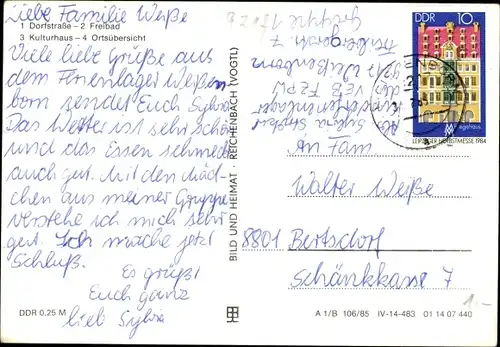 Liebe Familie Weiße
1 Dorfstraße – 2 Freibad
3 Kulturhaus – 4 Ortsübersicht
Viele liebe Grüße aus
dem Ferienlager Weißen
born sendet Euch Sylvia
Das Wetter ist sehr schön
und das Essen schmeckt
auch gut. Mit den Mäd
chen aus meiner Gruppe
verstehe ich mich sehr
gut. Ich mache jetzt
Schluß.
Es grüßt
Euch ganz
lieb Sylvia
DDR 0,25 M
BILD UND HEIMAT · REICHENBACH (VOGTL)
Gruppe
Weißenborn
VEB
DDR 10
LEIPZIGER HERBSTMESSE 1984
An Fam
Walter Weiße
8801 Bertsdorf
Schänkkasse 7
1.-
A 1/B 106/85 IV-14-483 01 14 07 440